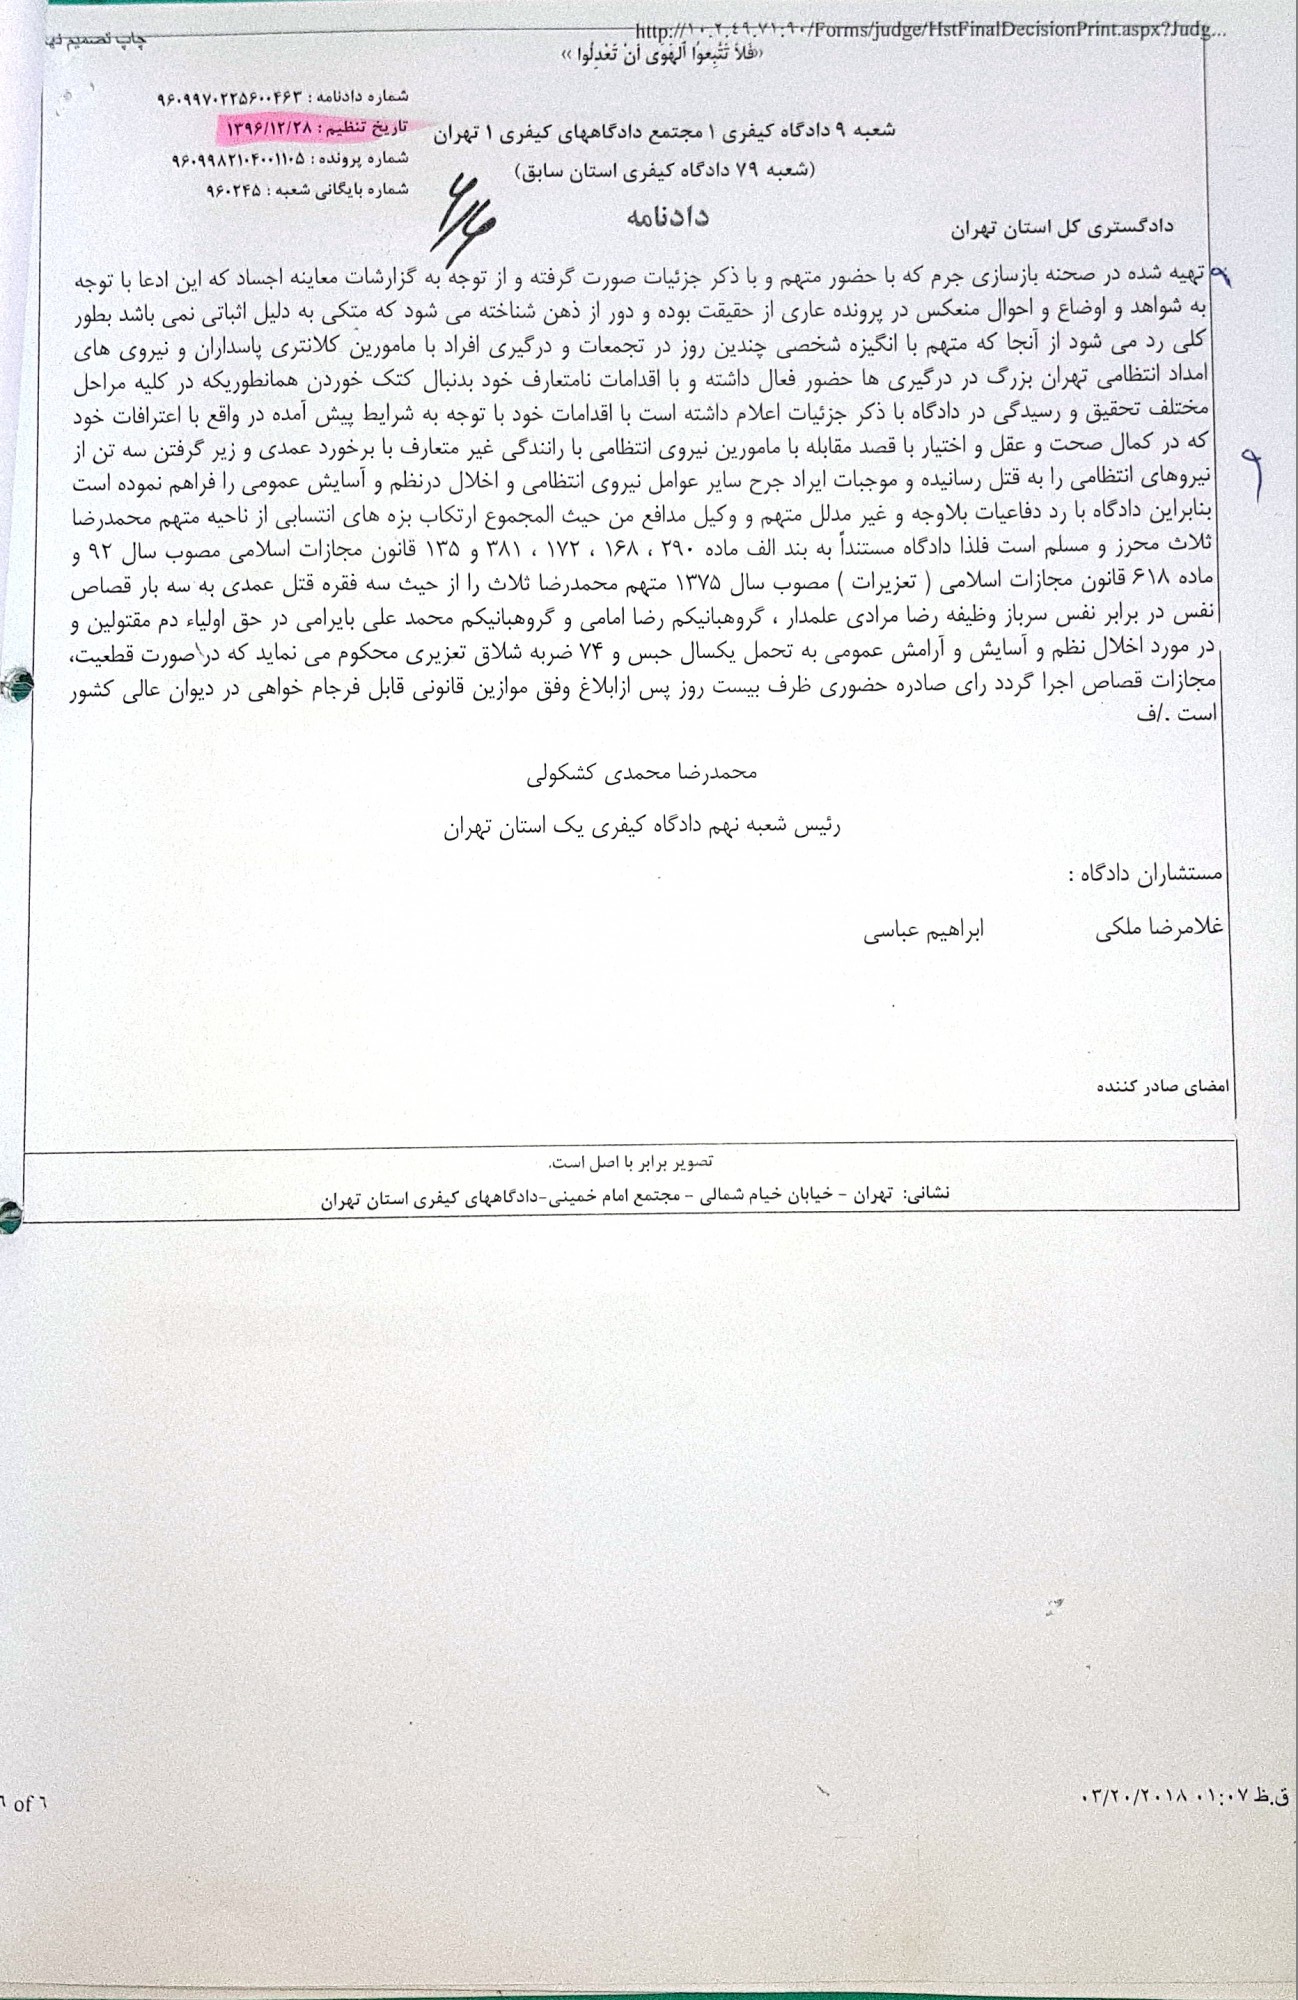 http://۱۰.۲.٤٩.٧١:٩٠/Forms/judge/HstFinalDecisionPrint.aspx?Judg...
چاپ تصمیم نها
«فَلاَ تَتَّبِعوُا اَلهَوَی اَنْ تَعْدِلُوا »
شماره دادنامه : ۹۶۰۹۹۷۰۲۲۵۶۰۰۴۶۳
تاریخ تنظیم : ۱۳۹۶/۱۲/۲۸
شماره پرونده : ۹۶۰۹۹۸۲۱۰۴۰۰۱۱۰۵
شماره بایگانی شعبه : ۹۶۰۲۴۵
شعبه ۹ دادگاه کیفری ۱ مجتمع دادگاههای کیفری ۱ تهران
(شعبه ۷۹ دادگاه کیفری استان سابق)
دادنامه
دادگستری کل استان تهران
تهیه شده در صحنه بازسازی جرم که با حضور متهم و با ذکر جزئیات صورت گرفته و از توجه به گزارشات معاینه اجساد که این ادعا با توجه
به شواهد و اوضاع و احوال منعکس در پرونده عاری از حقیقت بوده و دور از ذهن شناخته می شود که متکی به دلیل اثباتی نمی باشد بطور
کلی رد می شود از آنجا که متهم با انگیزه شخصی چندین روز در تجمعات و درگیری افراد با مامورین کلانتری پاسداران و نیروی های
امداد انتظامی تهران بزرگ در درگیری ها حضور فعال داشته و با اقدامات نامتعارف خود بدنبال کتک خوردن همانطوریکه در کلیه مراحل
مختلف تحقیق و رسیدگی در دادگاه با ذکر جزئیات اعلام داشته است با اقدامات خود با توجه به شرایط پیش آمده در واقع با اعترافات خود
که در کمال صحت و عقل و اختیار با قصد مقابله با مامورین نیروی انتظامی با رانندگی غیر متعارف با برخورد عمدی و زیر گرفتن سه تن از
نیروهای انتظامی را به قتل رسانیده و موجبات ایراد جرح سایر عوامل نیروی انتظامی و اخلال درنظم و آسایش عمومی را فراهم نموده است
بنابراین دادگاه با رد دفاعیات بلاوجه و غیر مدلل متهم و وکیل مدافع من حیث المجموع ارتکاب بزه های انتسابی از ناحیه متهم محمدرضا
ثلاث محرز و مسلم است فلذا دادگاه مستنداً به بند الف ماده ۲۹۰ ، ۱۶۸ ، ۱۷۲ ، ۳۸۱ و ۱۳۵ قانون مجازات اسلامی مصوب سال ۹۲ و
ماده ۶۱۸ قانون مجازات اسلامی ( تعزیرات ) مصوب سال ۱۳۷۵ متهم محمدرضا ثلاث را از حیث سه فقره قتل عمدی به سه بار قصاص
نفس در برابر نفس سرباز وظیفه رضا مرادی علمدار ، گروهبانیکم رضا امامی و گروهبانیکم محمد علی بایرامی در حق اولیاء دم مقتولین و
در مورد اخلال نظم و آسایش و آرامش عمومی به تحمل یکسال حبس و ۷۴ ضربه شلاق تعزیری محکوم می نماید که در صورت قطعیت،
مجازات قصاص اجرا گردد رای صادره حضوری ظرف بیست روز پس ازابلاغ وفق موازین قانونی قابل فرجام خواهی در دیوان عالی کشور
است ./ف
محمدرضا محمدی کشکولی
رئیس شعبه نهم دادگاه کیفری یک استان تهران
مستشاران دادگاه :
غلامرضا ملکی ابراهیم عباسی
امضای صادر کننده
تصویر برابر با اصل است.
نشانی: تهران - خیابان خیام شمالی - مجتمع امام خمینی-دادگاههای کیفری استان تهران
٦ of ٦
۰۳/۲۰/۲۰۱۸ ۰۱:۰۷ ق.ظ